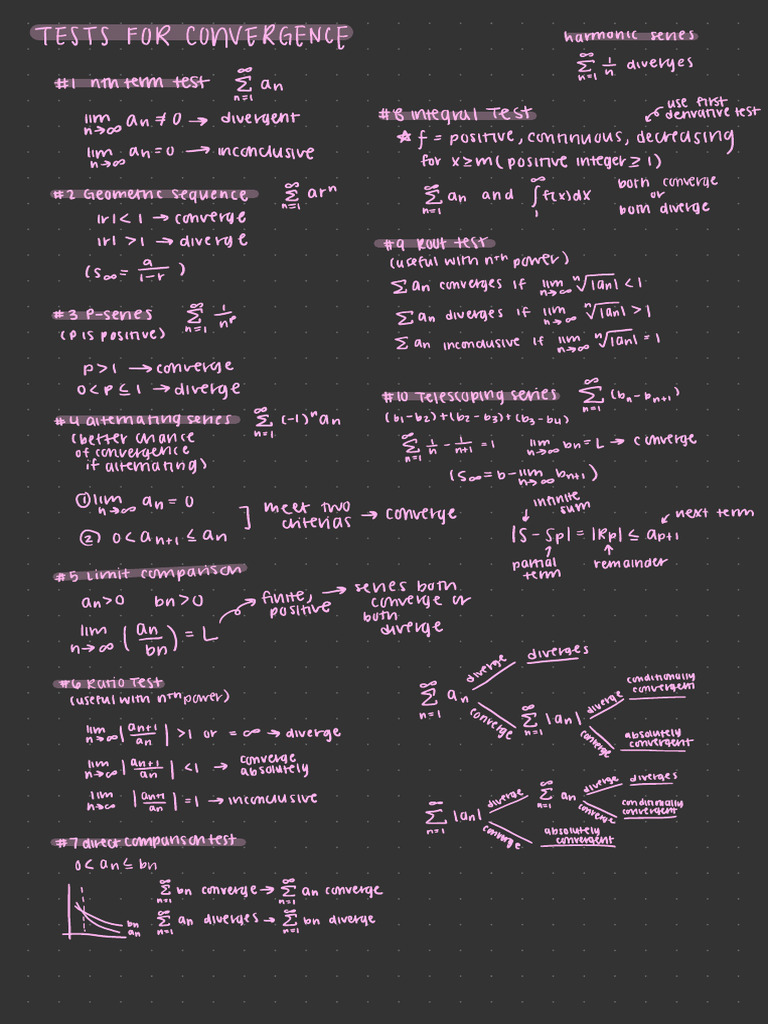 TESTS FOR CONVERGENCE
#1 nth term test ∞∑n=1 an
lim n→∞ an ≠ 0 → divergent
lim n→∞ an = 0 → inconclusive
#2 Geometric sequence ∞∑n=1 arⁿ
|r| < 1 → converge
|r| > 1 → diverge
(S∞ = a/(1-r))
#3 P-series ∞∑n=1 1/nᵖ
(P is positive)
P > 1 → converge
0 < P ≤ 1 → diverge
#4 alternating series ∞∑n=1 (-1)ⁿ an
(better chance
of convergence
if alternating)
① lim n→∞ an = 0
② 0 < an+1 ≤ an
] meet two
criterias → converge
#5 Limit comparison
an > 0 bn > 0
lim n→∞ (an/bn) = L
→ finite,
positive
→ series both
converge or
both
diverge
#6 Ratio Test
(useful with nth power)
lim n→∞ |an+1/an| > 1 or = ∞ → diverge
lim n→∞ |an+1/an| < 1 → converge
absolutely
lim n→∞ |an+1/an| = 1 → inconclusive
#7 direct comparison test
0 < an ≤ bn
bn
an
∞∑n=1 bn converge → ∞∑n=1 an converge
∞∑n=1 an diverges → ∞∑n=1 bn diverge
harmonic series
∞∑n=1 1/n diverges
#8 integral Test
use first
derivative test
★ f = positive, continuous, decreasing
for x ≥ m (positive integer ≥ 1)
∞∑n=1 an and ∞∫1 f(x)dx
both converge
or
both diverge
#9 Root test
(useful with nth power)
∑ an converges if lim n→∞ ⁿ√|an| < 1
∑ an diverges if lim n→∞ ⁿ√|an| > 1
∑ an inconclusive if lim n→∞ ⁿ√|an| = 1
#10 Telescoping series ∞∑n=1 (bn - bn+1)
(b1-b2)+(b2-b3)+(b3-b4)
∞∑n=1 1/n - 1/n+1 = 1 lim n→∞ bn = L → converge
(S∞ = b - lim n→∞ bn+1)
infinite
sum
next term
|S - Sp| = |Rp| ≤ ap+1
partial
term
remainder
∞∑n=1 an
diverge
diverges
converge
∞∑n=1 |an|
diverge
conditionally
convergent
converge
absolutely
convergent
∞∑n=1 |an|
diverge
∞∑n=1 an
diverge
diverges
converge
conditionally
convergent
converge
absolutely
convergent